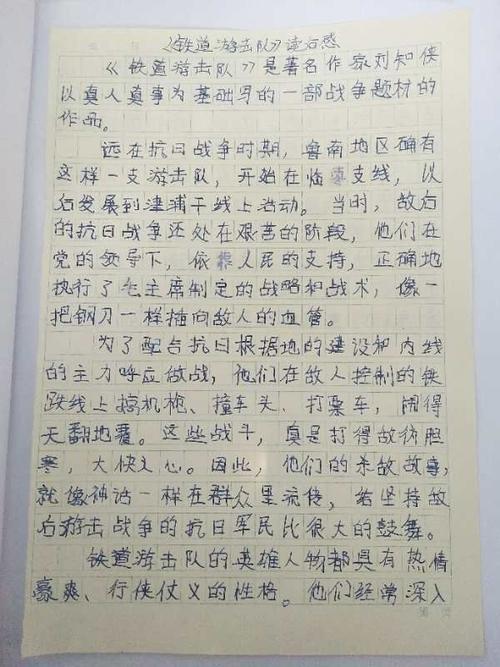 《铁道游击队》读后感
《铁道游击队》是著名作家刘知侠
以真人真事为基础写的一部战争题材的
作品。
远在抗日战争时期，鲁南地区确有
这样一支游击队，开始在临枣支线，以
后发展到津浦干线上活动。当时，敌后
的抗日战争还处在艰苦的阶段，他们在
党的领导下，依靠人民的支持，正确地
执行了毛主席制定的战略和战术，像一
把钢刀一样插向敌人的血管。
为了配合抗日根据地的建设和内线
的主力呼应做战，他们在敌人控制的铁
路线上搞机枪、撞车头、打票车，闹得
天翻地覆。这些战斗，真是打得敌伪胆
寒，大快人心。因此，他们的杀敌故事，
就像神话一样在群众里流传，给坚持敌
后游击战争的抗日军民比很大的鼓舞。
铁道游击队的英雄人物都具有热情
豪爽、行侠仗义的性格。他们经常深入